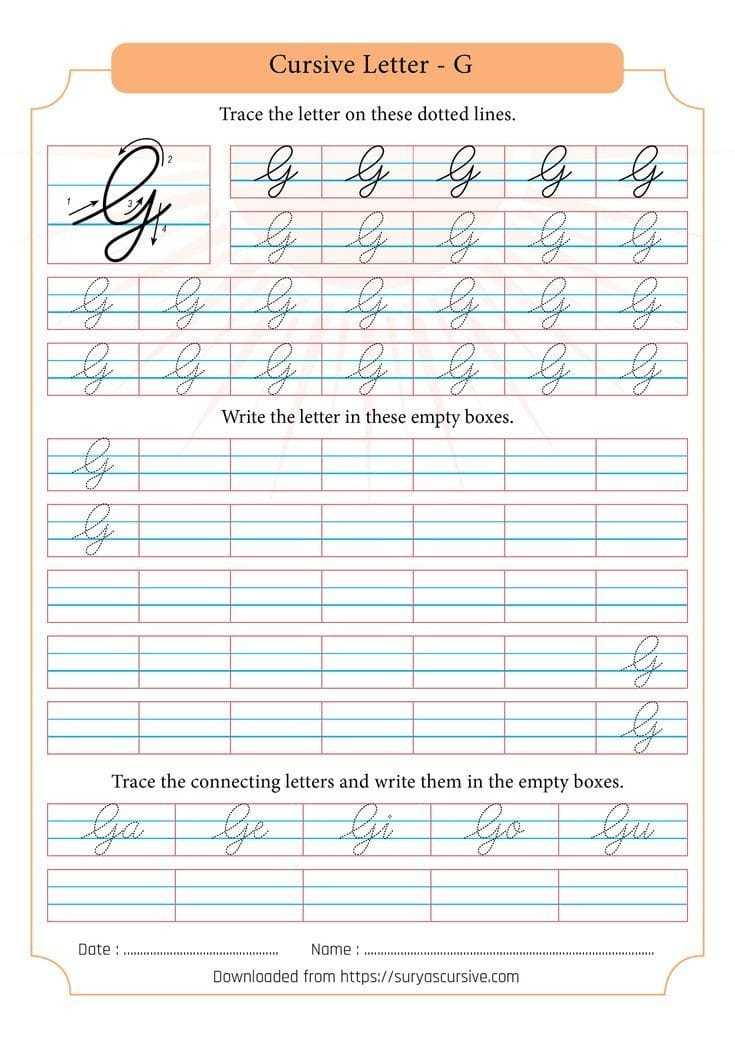 Cursive Letter - G
Trace the letter on these dotted lines.
1 2 3 4 G
G G G G G
G G G G G
G G G G G G G
G G G G G G G
Write the letter in these empty boxes.
G
G
G
G
Trace the connecting letters and write them in the empty boxes.
Ga Ge Gi Go Gu
Date : ........................................ Name : ..........................................................................
Downloaded from https://suryascursive.com